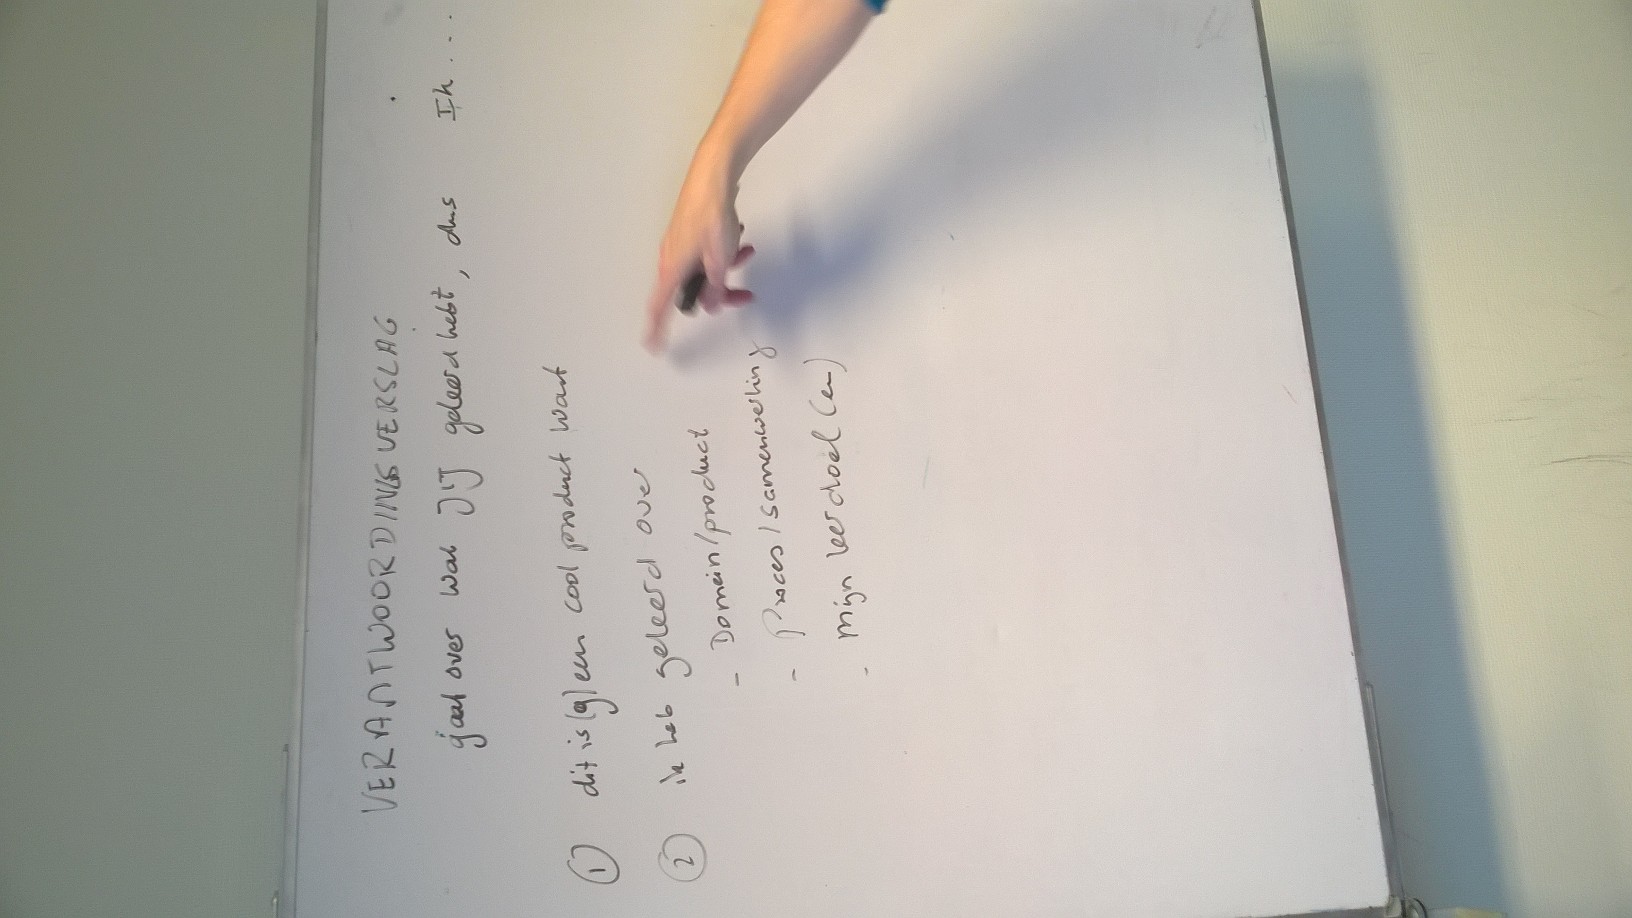 VERANTWOORDINGSVERSLAG
gaat over wat JIJ geleerd hebt, dus Ik ...
① dit is (g)een cool product want
② ik heb geleerd over
- Domein/product
- Proces/samenwerking
- Mijn leerdoel(en)